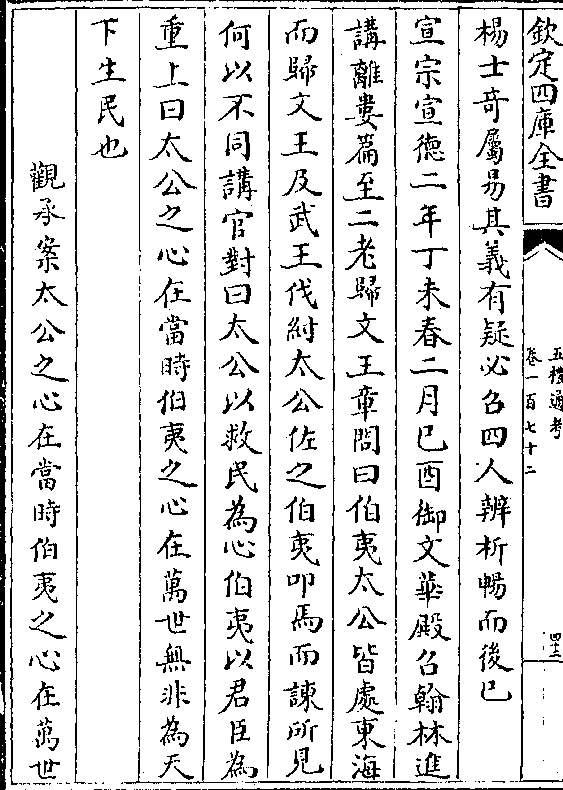 欽定四庫全書
五禮通考
卷一百七十二
四十三
楊士奇屬易其義有疑必召四人辨析暢而後已
宣宗宣德二年丁未春二月己酉御文華殿召翰林進
講離婁篇至二老歸文王章問曰伯夷太公皆處東海
而歸文王及武王伐紂太公佐之伯夷叩馬而諫所見
何以不同講官對曰太公以救民為心伯夷以君臣為
重上曰太公之心在當時伯夷之心在萬世無非為天
下生民也
觀承案太公之心在當時伯夷之心在萬世